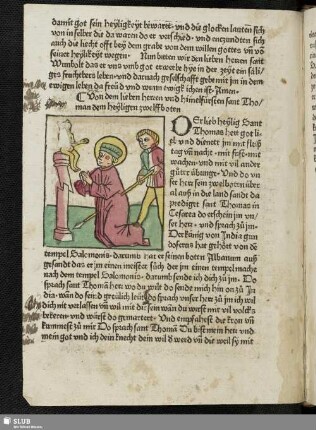 damit got sein heyligkeyt bewart. vnd die glocken lauten sich
von in selber die da waren do er verschied. vnd entzundten sich
auch die liecht offt bey dem grabe von dem willen gottes vñ võ
seiner heyligkeyt wegen. Nun bitten wir den lieben herren sant
das er vns vmb got erwerbe hye in der zeyt ein säli
ges leben. vnd darnach gesellschafft gebe mit jm in dem
ewigen leben da freud vnd wunn ewigklichen ist. Amen.
Von dem lieben herren vnd himelfürsten sant Tho
man dem heyligen zwelffboten
Der lieb heylig Sant
Thomas het got lieb
vnd dienett jm mit fleiß
tag vñ nacht. mit fast. mit
wachen. vnd mit vil ander
gůter übunge. Vnd do vn
ser herr sein zwelfboten über
al auß in die land sandt da
prediget sant Thomas in
Cesarea do erschein jm vn/
ser herr. vnd sprach zů jm.
Der künig von India gun
doferus hat gehört von dē
tempel Salemonis. darumb hat er seinen boten Albanum auß
gesandt das er jm einen meister sůch der jm einen tempel mache
nach dem tempel Salomonis. darumb sende ich dich zů jm. Do
sprach sant Thomā herr wo du wilt do sende mich hin on zů In
dia. wan do seind greülich leüt do sprach vnser herr zů jm ich wil
dich nit verlassen vñ wil mit dir sein wan du würst mir vil volcks
bekeren. vnd würst do gemartert. Vnd empfahest die kron vñ
kummest zů mir Do sprach sant Thomā Du bist mein herr vnd
mein got vnd ich dein knecht dein will d' werd vñ die weil sy mit
SLUB